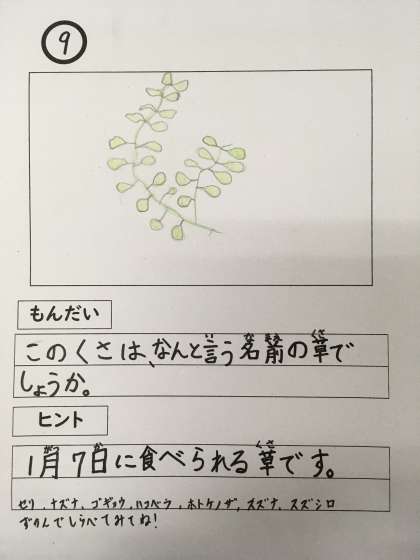 9
もんだい
このくさは、なんと言う名前の草で
しょうか。
ヒント
1月7日に食べられる草です。
セリ、ナズナ、ゴギョウ、ハコベラ、ホトケノザ、スズナ、スズシロ
ずかんでしらべてみてね!